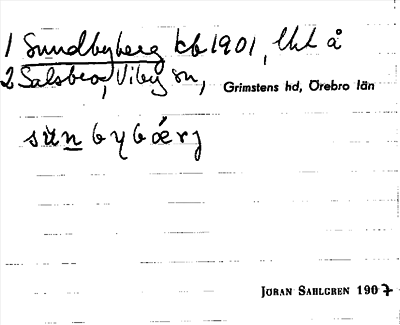 1 Sundbyberg kb 1901, lht å
2 Salsbro, Viby sn, Grimstens hd, Örebro län
sùnbybǽrj
JÖRAN SAHLGREN 1907